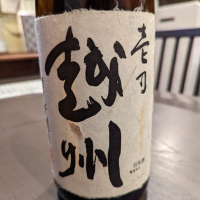 壱乃
越州
日本酒